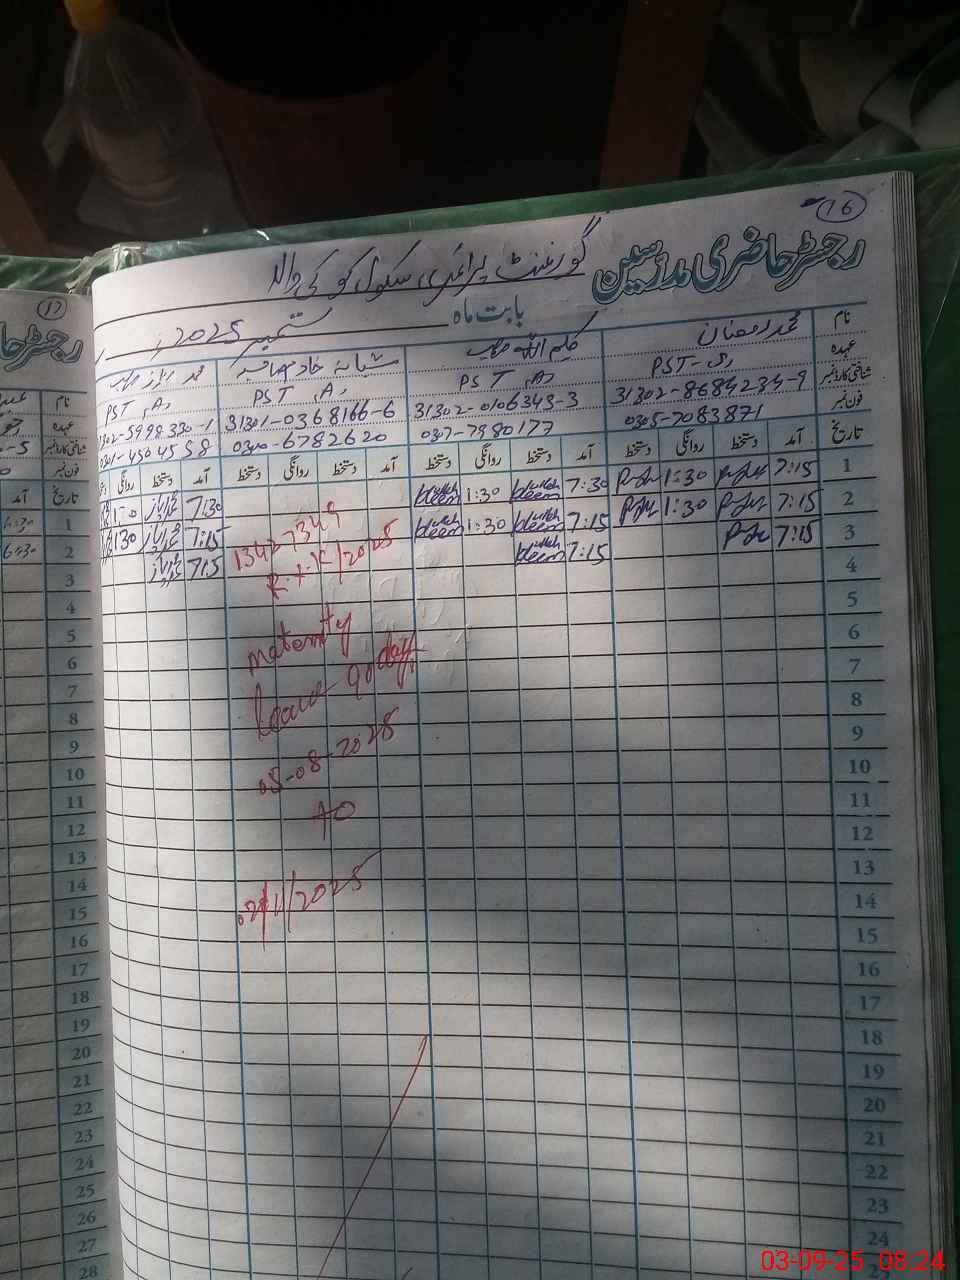 16
رجسٹر حاضری مدرسین
گورنمنٹ پرائمری سکول کوکی والا
بابت ماہ ستمبر 2025ء
نام محمد رمضان کلیم اللہ صاحب شبانہ خادم صاحبہ
عہدہ PST PST PST PST
شناختی کارڈ نمبر 31302-8684234-9 31302-0106343-3 31301-0368166-6 302-5998330-1
فون نمبر 0305-7083871 0307-7980177 0300-6782620 0301-4504558
تاریخ آمد دستخط روانگی دستخط آمد دستخط روانگی دستخط آمد دستخط روانگی دستخط آمد دستخط روانگی
1 7:15 1:30 7:30 1:30 7:30
2 7:15 1:30 7:15 1:30 7:15 1:30
3 7:15 7:15 7:15
1342-7349
R.Y.K/2025
maternity
leave 90 days
05-08-2025
TO
02/11/2025
4
5
6
7
8
9
10
11
12
13
14
15
16
17
18
19
20
21
22
23
24
17
رجسٹر حا
نام
عہدہ
شناختی کارڈ نمبر
فون نمبر
تاریخ آمد
1
2
3
4
5
6
7
8
9
10
11
12
13
14
15
16
17
18
19
20
21
22
23
24
25
26
27
28
03-09-25 08:24